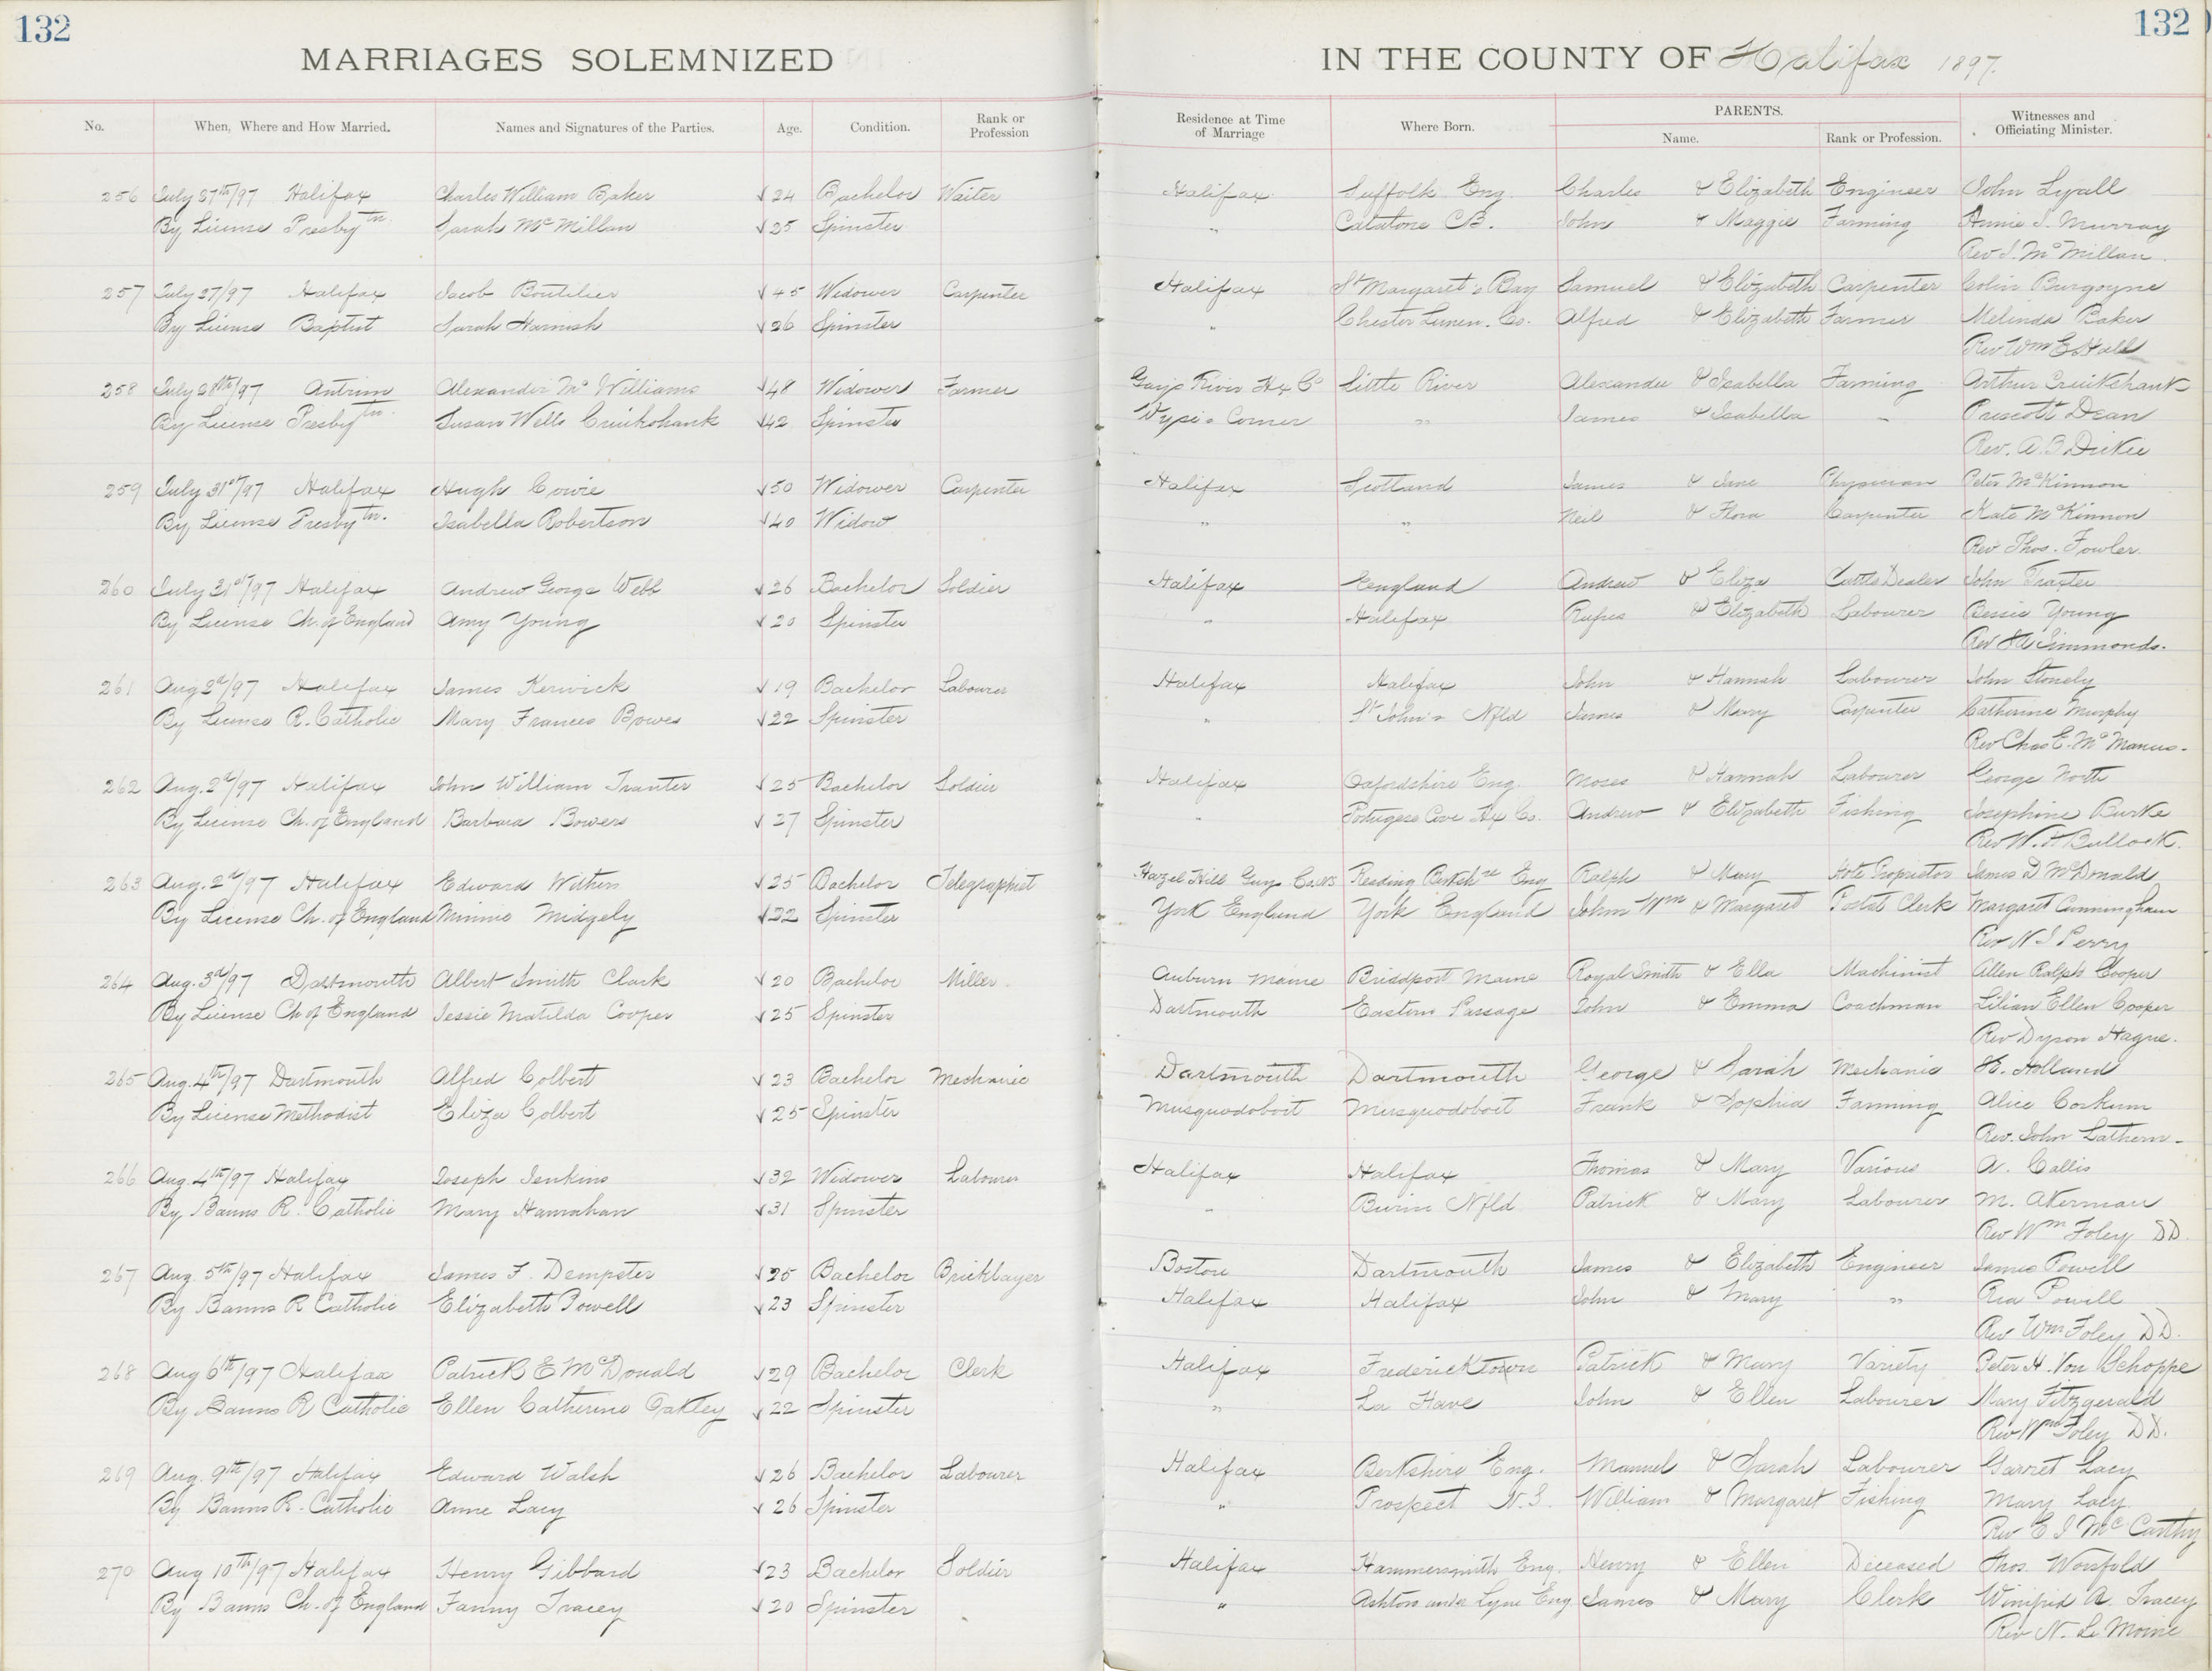 132
132
MARRIAGES SOLEMNIZED
IN THE COUNTY OF Halifax 1897.
No. When, Where and How Married. Names and Signatures of the Parties. Age. Condition. Rank or Profession Residence at Time of Marriage Where Born. PARENTS. Name. Rank or Profession. Witnesses and Officiating Minister.
256 July 27th/97 Halifax Charles William Baker √24 Bachelor Waiter Halifax Suffolk Eng. Charles & Elizabeth Engineer John Lyall
By License Presbytn. Sarah McMillan √25 Spinster " Catalone CB. John & Maggie Farming Annie J. Murray
Rev J. McMillan.
257 July 27/97 Halifax Jacob Boutilier √45 Widower Carpenter Halifax St Margaret's Bay Samuel & Elizabeth Carpenter Colin Burgoyne
By License Baptist Sarah Harnish √26 Spinster " Chester Lunen. Co. Alfred & Elizabeth Farmer Melinda Baker
Rev Wm E Hall
258 July 28th/97 Antrim Alexander McWilliams √48 Widower Farmer Gays River Hx Co Little River Alexander & Isabella Farming Arthur Cruikshank
By License Presbytn. Susan Wells Cruikshank √42 Spinster Wyse's Corner " James & Isabella - Prescott Dean
Rev. A. B Dickie
259 July 31st/97 Halifax Hugh Cowie √50 Widower Carpenter Halifax Scotland James & Jane Physician Peter McKinnon
By License Presbytn. Isabella Robertson √40 Widow " " Neil & Flora Carpenter Kate McKinnon
Rev Thos. Fowler.
260 July 31st/97 Halifax Andrew George Webb √26 Bachelor Soldier Halifax England Andrew & Eliza Cattle Dealer John
By License Ch. of England Amy Young √20 Spinster " Halifax Rufus & Elizabeth Labourer Bessie Young
Rev Simmonds.
261 Aug 2d/97 Halifax James Kerwick √19 Bachelor Labourer Halifax Halifax John & Hannah Labourer John Stonely
By License R. Catholic Mary Frances Bowes √22 Spinster " St John's Nfld James & Mary Carpenter Catherine Murphy
Rev Chas E. McManus.
262 Aug. 2d/97 Halifax John William Tranter √25 Bachelor Soldier Halifax Oxfordshire Eng. Moses & Hannah Labourer George North
By License Ch. of England Barbara Bowers √27 Spinster " Portugese Cove Hx Co. Andrew & Elizabeth Fishing Josephine Burke
Rev W. H Bullock.
263 Aug. 2d/97 Halifax Edward Withers √25 Bachelor Telegraphist Hazel Hill Guys. Co. NS Reading Berkshre Eng Ralph & Mary Hotel Proprietor James D McDonald
By License Ch. of England Minnie Midgely √22 Spinster York England York England John Wm & Margaret Postal Clerk Margaret Cunningham
Rev N I Perry
264 Aug. 3d/97 Dartmouth Albert Smith Clark √20 Bachelor Miller. Auburn Maine Bridport Maine Royal Smith & Ella Machinist Allen Ralph Cooper
By License Ch of England Jessie Matilda Cooper √25 Spinster Dartmouth Eastern Passage John & Emma Coachman Lilian Ellen Cooper
Rev Dyson Hague.
265 Aug. 4th/97 Dartmouth Alfred Colbert √23 Bachelor Mechanic Dartmouth Dartmouth George & Sarah Mechanic H. Holland
By License Methodist Eliza Colbert √25 Spinster Musquodoboit Musquodoboit Frank & Sophia Farming Alice Corkum
Rev. John Lathern.
266 Aug. 4th/97 Halifax Joseph Jenkins √32 Widower Labourer Halifax Halifax Thomas & Mary Various A. Callis
By Banns R. Catholic Mary Hanrahan √31 Spinster " Burin Nfld Patrick & Mary Labourer M. Akerman
Rev Wm Foley DD.
267 Aug. 5th/97 Halifax James F. Dempster √25 Bachelor Bricklayer Boston Dartmouth James & Elizabeth Engineer James Powell
By Banns R Catholic Elizabeth Powell √23 Spinster Halifax Halifax John & Mary " Rea Powell
Rev Wm Foley DD.
268 Aug 6th/97 Halifax Patrick E McDonald √29 Bachelor Clerk Halifax Fredericktown Patrick & Mary Variety Peter H. Von Schoppe
By Banns R Catholic Ellen Catherine Oakley √22 Spinster " La Have John & Ellen Labourer Mary Fitzgerald
Rev Wm Foley DD.
269 Aug. 9th/97 Halifax Edward Walsh √26 Bachelor Labourer Halifax Berkshire Eng. Manuel & Sarah Labourer Garret Lacy
By Banns R. Catholic Anne Lacy √26 Spinster " Prospect N.S. William & Margaret Fishing Mary Lacy
Rev E J McCarthy
270 Aug 10th/97 Halifax Henry Gibbard √23 Bachelor Soldier Halifax Hammersmith Eng. Henry & Ellen Deceased Thos. Worsfold
By Banns Ch. of England Fanny Tracey √20 Spinster " Ashton under Lyne Eng James & Mary Clerk Winifred A. Tracey
Rev N. Le Moine